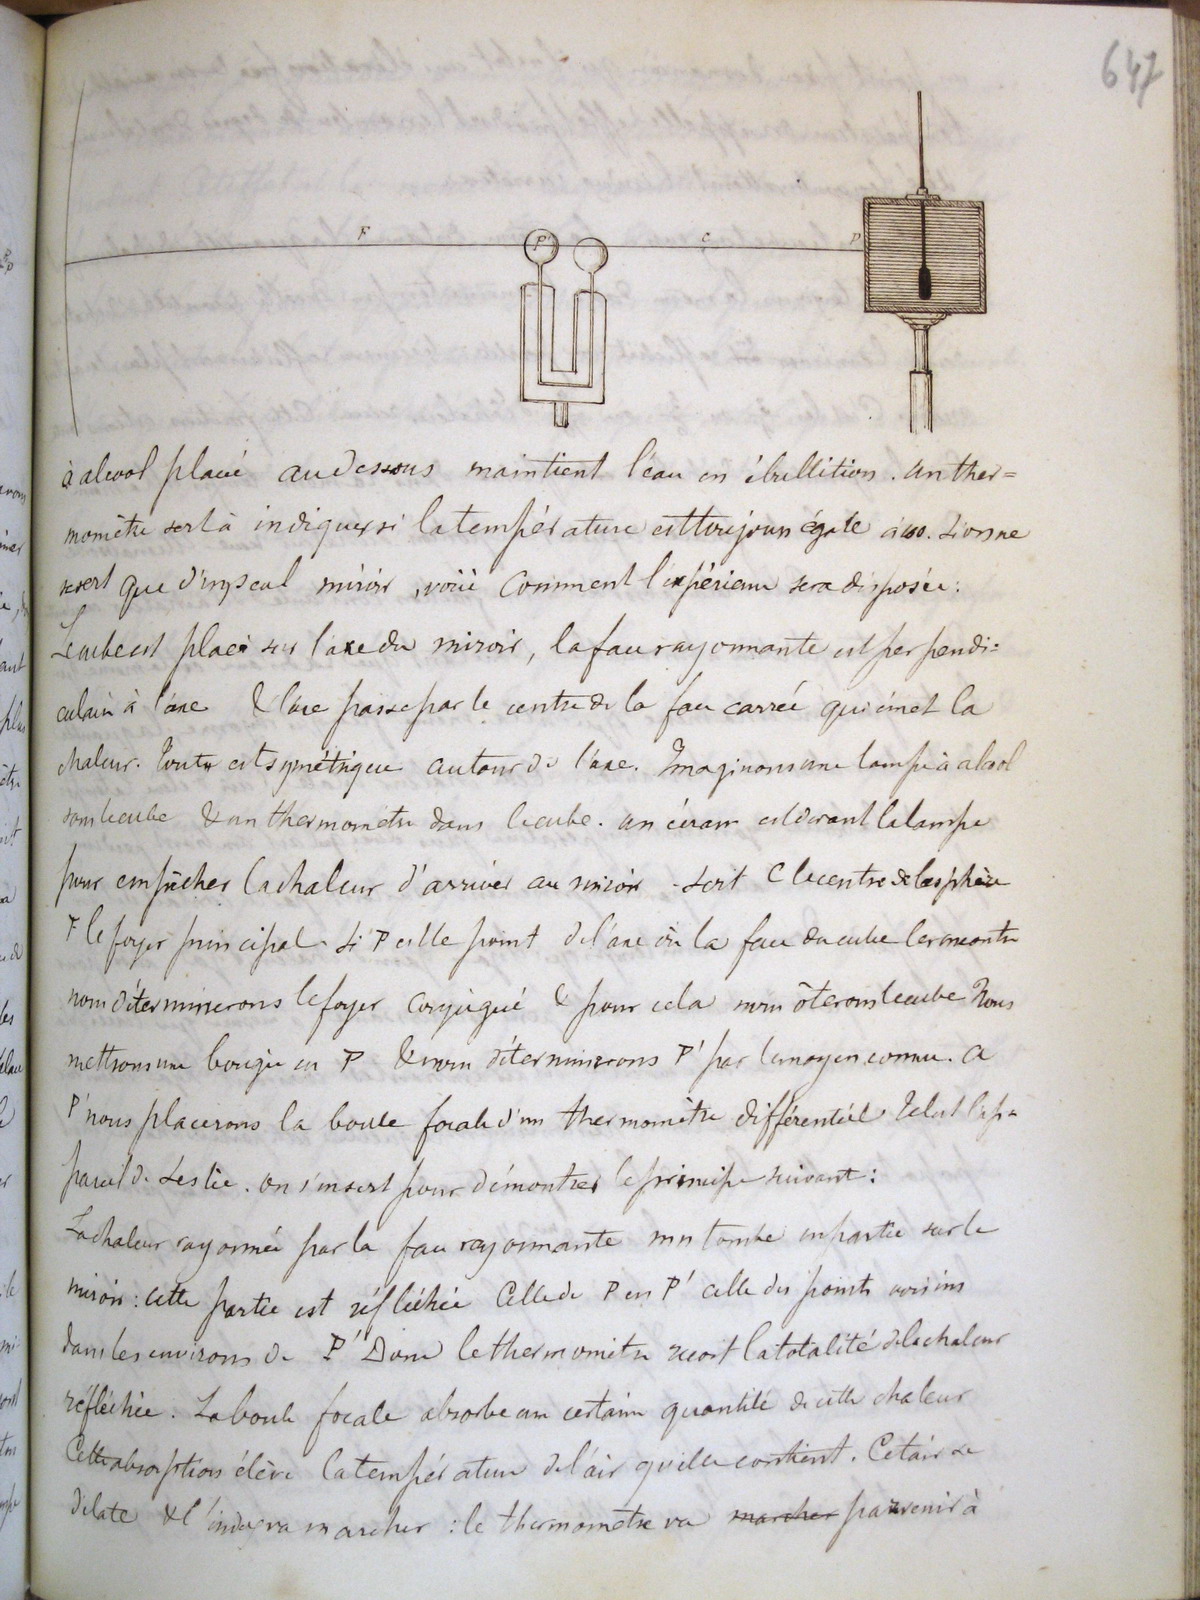 647
F P' C P
à alcool placé au dessous maintient l'eau en ébullition. un ther=
momètre sert à indiquer si la température est toujours égale à 100. Si on ne
se sert que d'un seul miroir, voici comment l'expérience sera disposée:
Le cube est placé sur l'axe du miroir, la face rayonnante est perpendi=
culaire à l'axe & l'axe passe par le centre de la face carrée qui émet la
chaleur. Tout est symétrique autour de l'axe. Imaginons une lampe à alcool
sous le cube & un thermomètre dans le cube. un écran est devant la lampe
pour empêcher la chaleur d'arriver au miroir. Soit C le centre de la sphère
F le foyer principal. Si P est le point de l'axe où la face du cube le rencontre
nous déterminerons le foyer conjugué & pour cela nous ôterons le cube Nous
mettrons une bougie en P & nous déterminerons P' par le moyen connu. A
P' nous placerons la boule focale d'un thermomètre différentiel Tel est l'ap=
pareil de Leslie. On s'en sert pour démontrer le principe suivant:
La chaleur rayonnée par la face rayonnante mn tombe en partie sur le
miroir: cette partie est réfléchie Celle de P en P' celle des points voisins
dans les environs de P' Donc le thermomètre reçoit la totalité de la chaleur
réfléchie. La boule focale absorbe une certaine quantité de cette chaleur
Cette absorption élève la température de l'air qu'elle contient. Cet air se
dilate & l'index va marcher: le thermomètre va marcher parvenir à